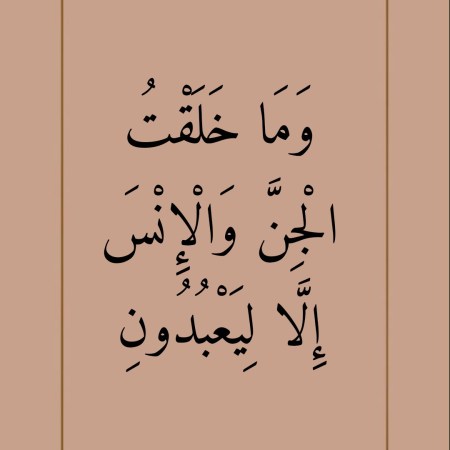 وَمَا خَلَقْتُ
الْجِنَّ وَالْإِنْسَ
إِلَّا لِيَعْبُدُونِ